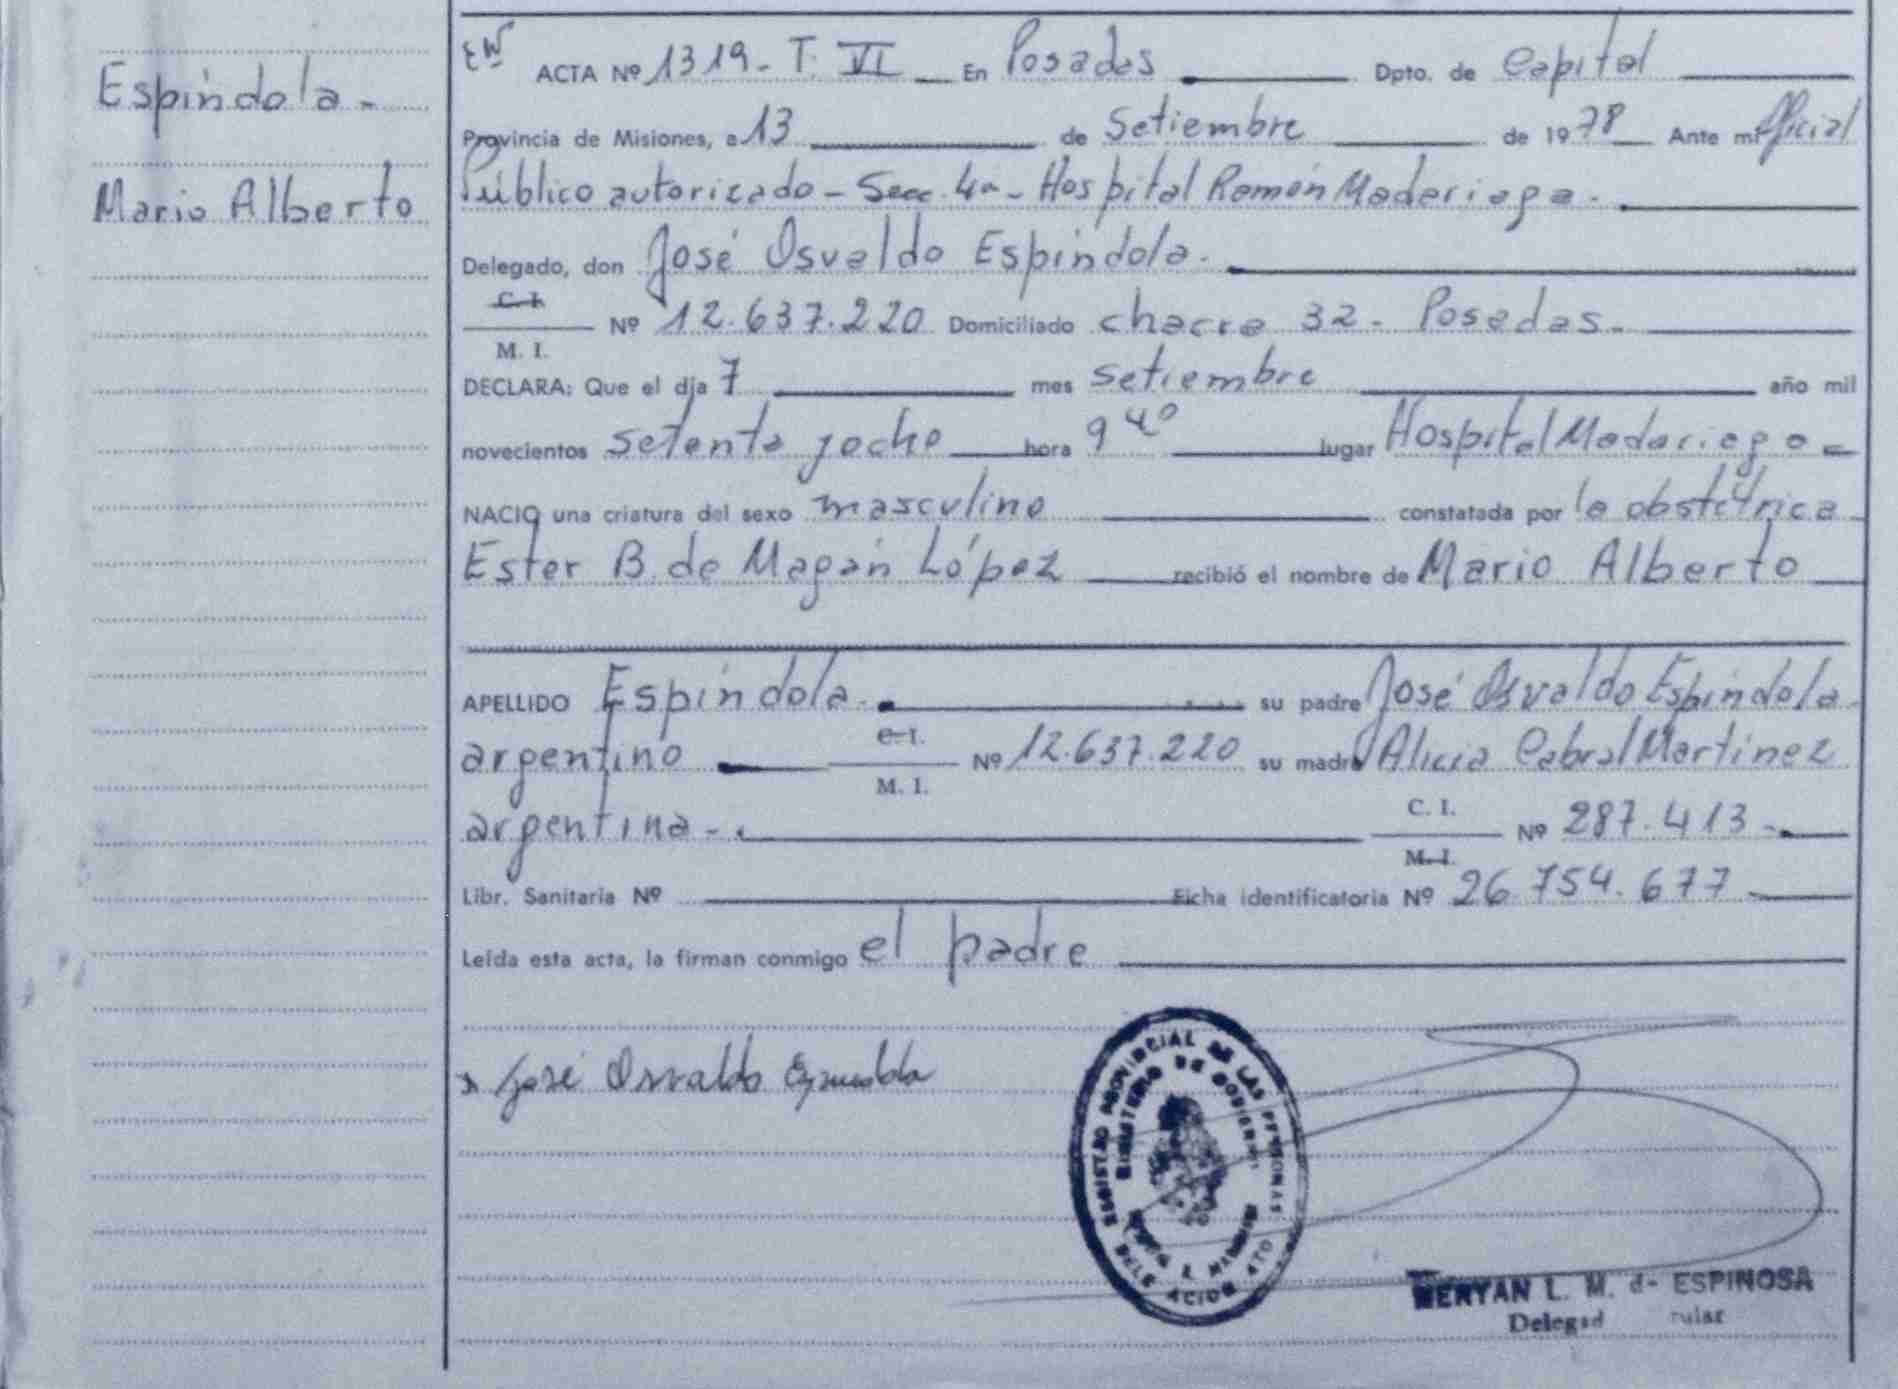 Espíndola -
Mario Alberto
ACTA Nº 1319 - T. VI En Posadas Dpto. de Capital
Provincia de Misiones, a 13 de Setiembre de 1978 Ante mí Oficial
Público autorizado - Secc. 4ª - Hospital Ramón Madariaga.
Delegado, don José Osvaldo Espíndola.
C. I.
M. I.
Nº 12.637.220 Domiciliado chacra 32 - Posadas.
DECLARA: Que el día 7 mes setiembre año mil
novecientos setenta yocho hora 9 40 lugar Hospital Madariaga
NACIO una criatura del sexo masculino constatada por la obstétrica
Ester B. de Magán López recibió el nombre de Mario Alberto
APELLIDO Espíndola. su padre José Osvaldo Espíndola
argentino C. I.
M. I.
Nº 12.637.220 su madre Alicia Cabral Martínez
argentina - C. I.
M. I.
Nº 287.413 -
Libr. Sanitaria Nº Ficha identificatoria Nº 26.754.677
Leída esta acta, la firman conmigo el padre
José Osvaldo Espindola
REGISTRO PROVINCIAL DE LAS PERSONAS
MINISTERIO DE GOBIERNO
L. M. de ESPINOSA